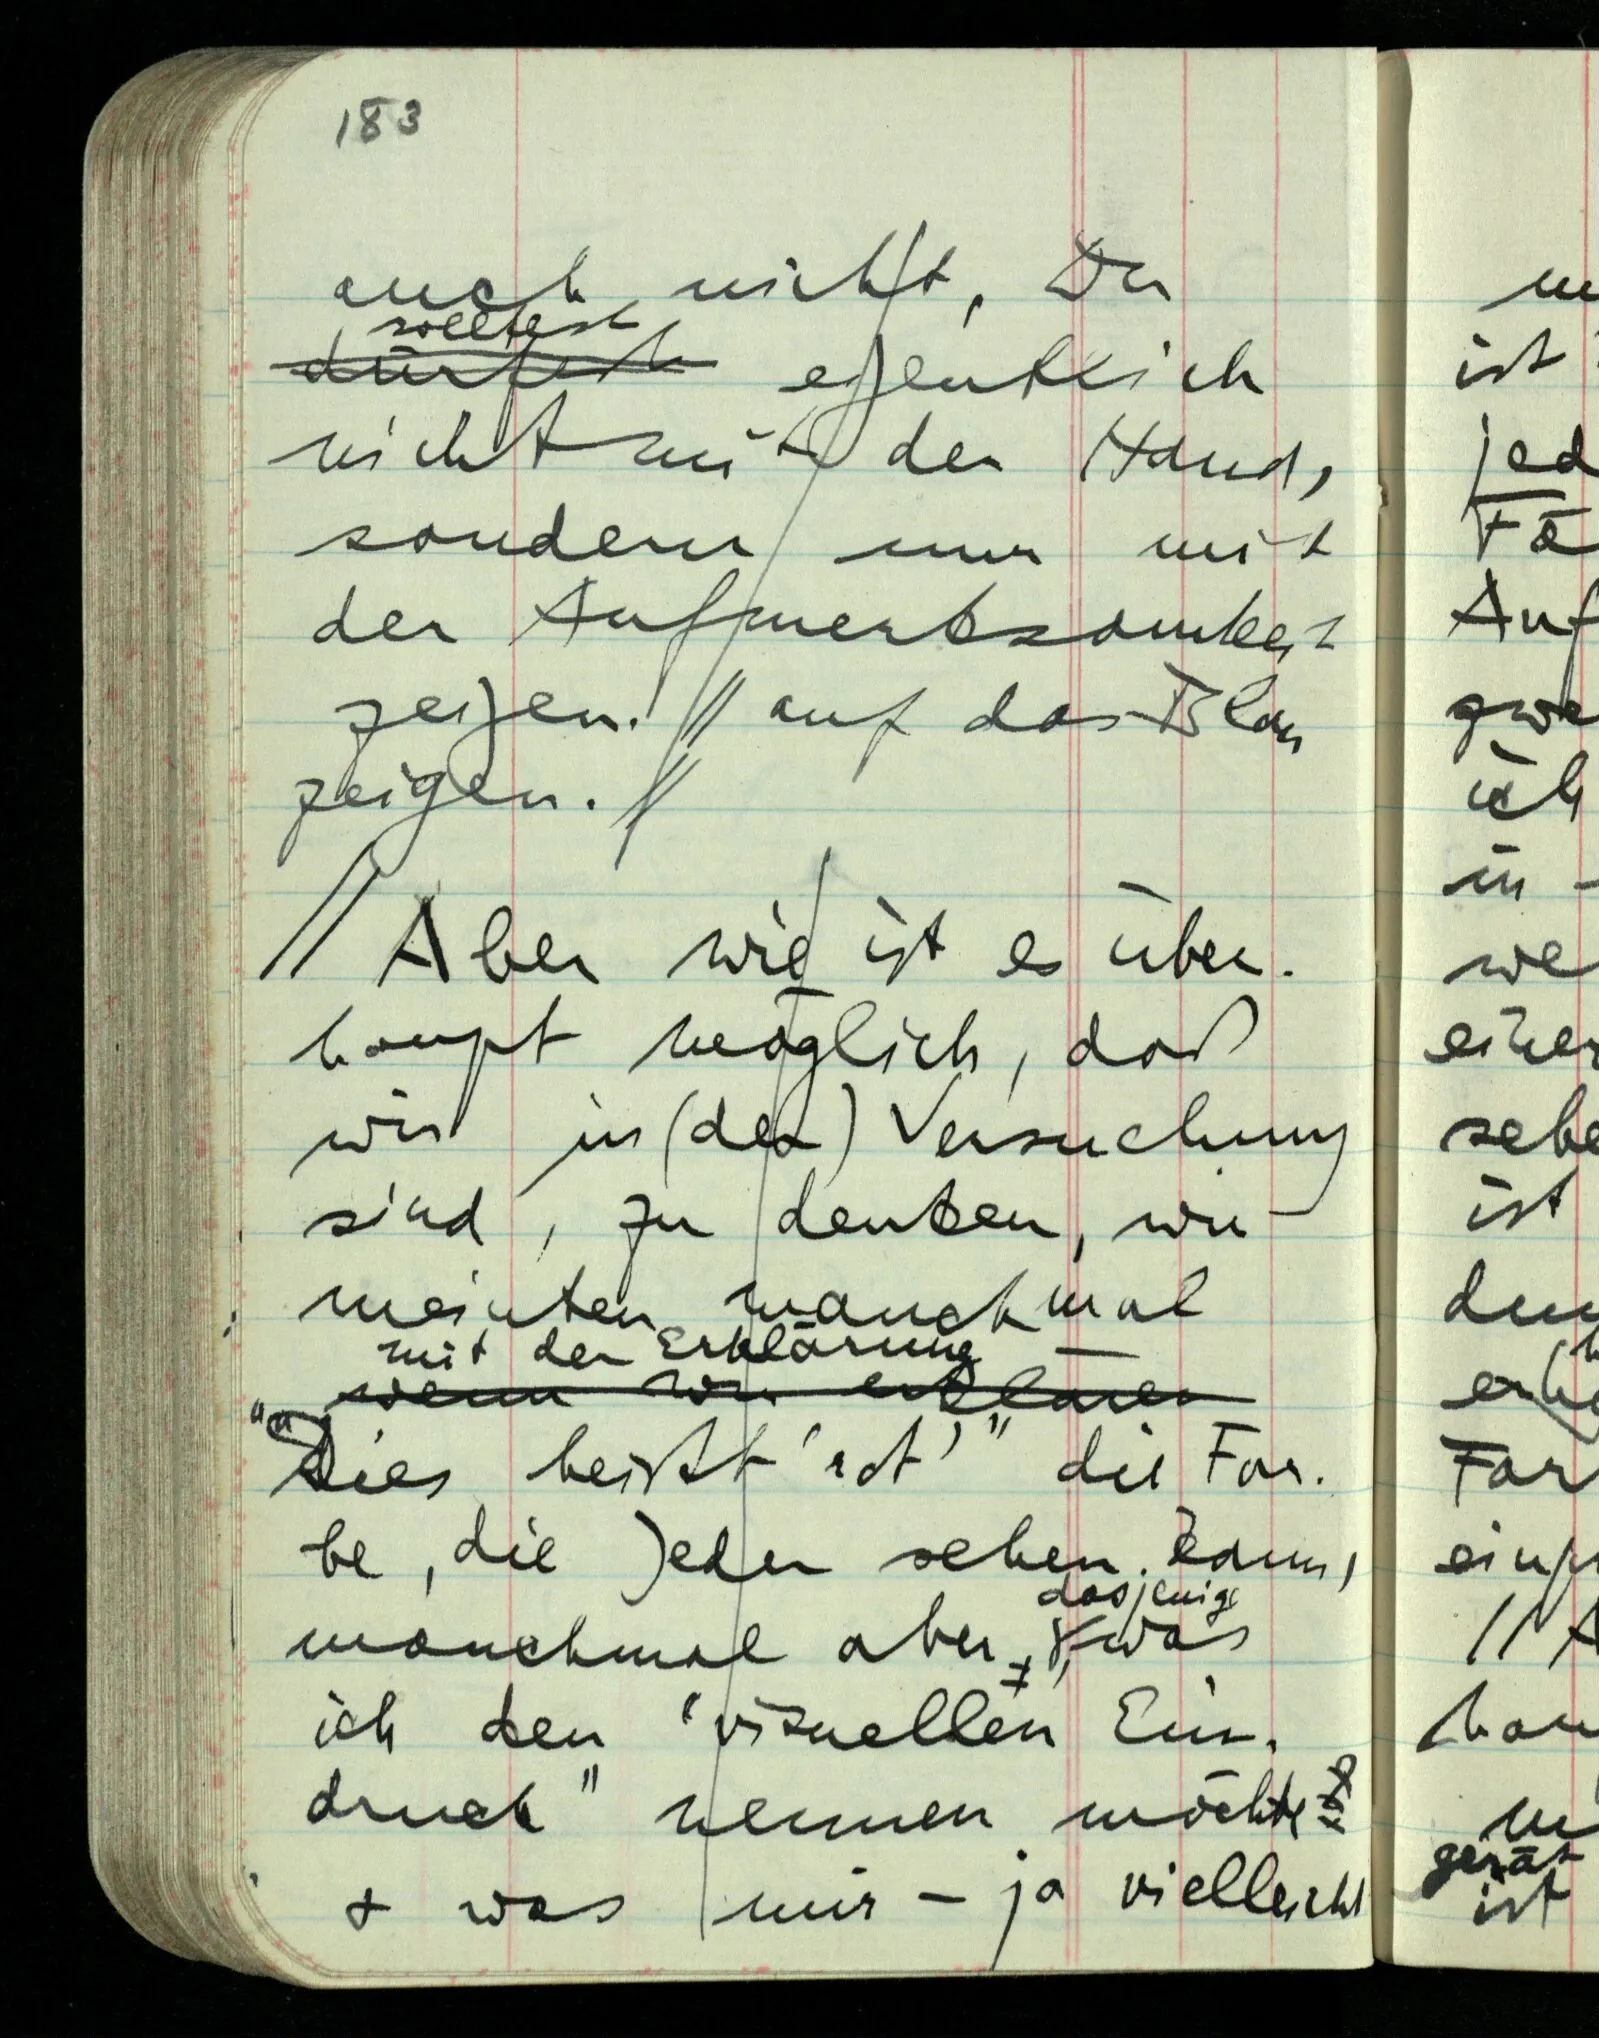 183
auch nicht, Du
solltest
dürfest eigentlich
nicht mit der Hand,
sondern nur mit
der Aufmerksamkeit
zeigen. // auf das Blau
zeigen. //
// Aber wie ist es über-
haupt möglich, daß
wir in (der) Versuchung
sind, zu denken, wir
meinten manchmal
mit der Erklärung
wenn wir erklären
"Dies heißt 'rot'" die Far-
be, die Jeder sehen kann,
dasjenige
manchmal aber, was
ich den "visuellen Ein-
druck" nennen möchte
+ was mir – ja vielleicht
ist
jed
Fä
Auf
zwe
ich
in -
we
einer
sehe
ist
den
Far
einp
// A
gerät
ist